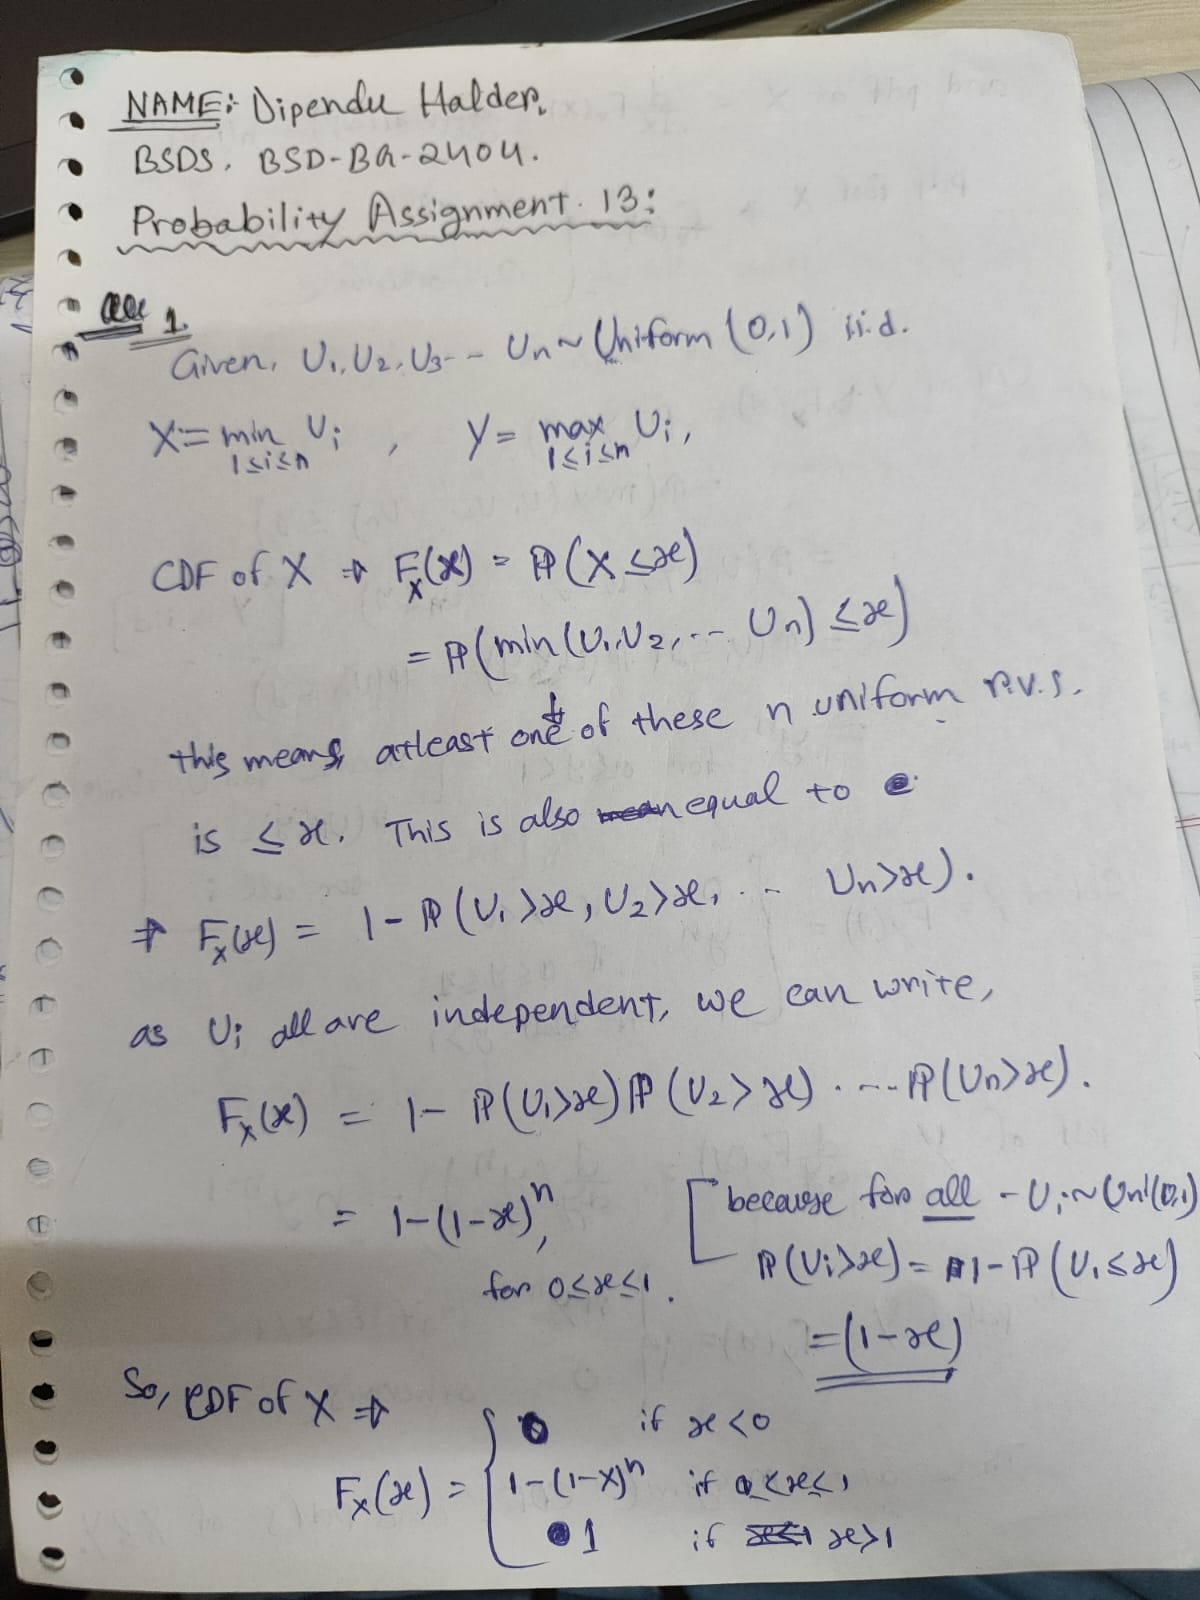 NAME:- Dipendu Halder.
BSDS. BSD-BG-2404.
Probability Assignment. 13:
1.
Given, U₁, U₂, U₃-- Uₙ ~ Uniform (0,1) i.i.d.
X:= min Uᵢ , Y= max Uᵢ,
1≤i≤n 1≤i≤n
CDF of X ⇒ Fₓ(x) = ℙ(X ≤ x)
= ℙ(min(U₁,U₂,.-- Uₙ) ≤x)
this means, atleast one of these n uniform r.v.s.
is ≤ x. This is also equal to
⇒ Fₓ(x) = 1- ℙ(U₁>x, U₂>x, .-- Uₙ>x).
as Uᵢ all are independent, we can write,
Fₓ(x) = 1- ℙ(U₁>x) ℙ(U₂>x) . --- ℙ(Uₙ>x).
= 1-(1-x)ⁿ, [because for all - Uᵢ~Uni(0,1)
for 0≤x≤1. ℙ(Uᵢ>x) = 1-ℙ(Uᵢ≤x)
=(1-x)
So, CDF of X ⇒
Fₓ(x) = { 0 if x<0
1-(1-x)ⁿ if 0≤x≤1
1 if x>1